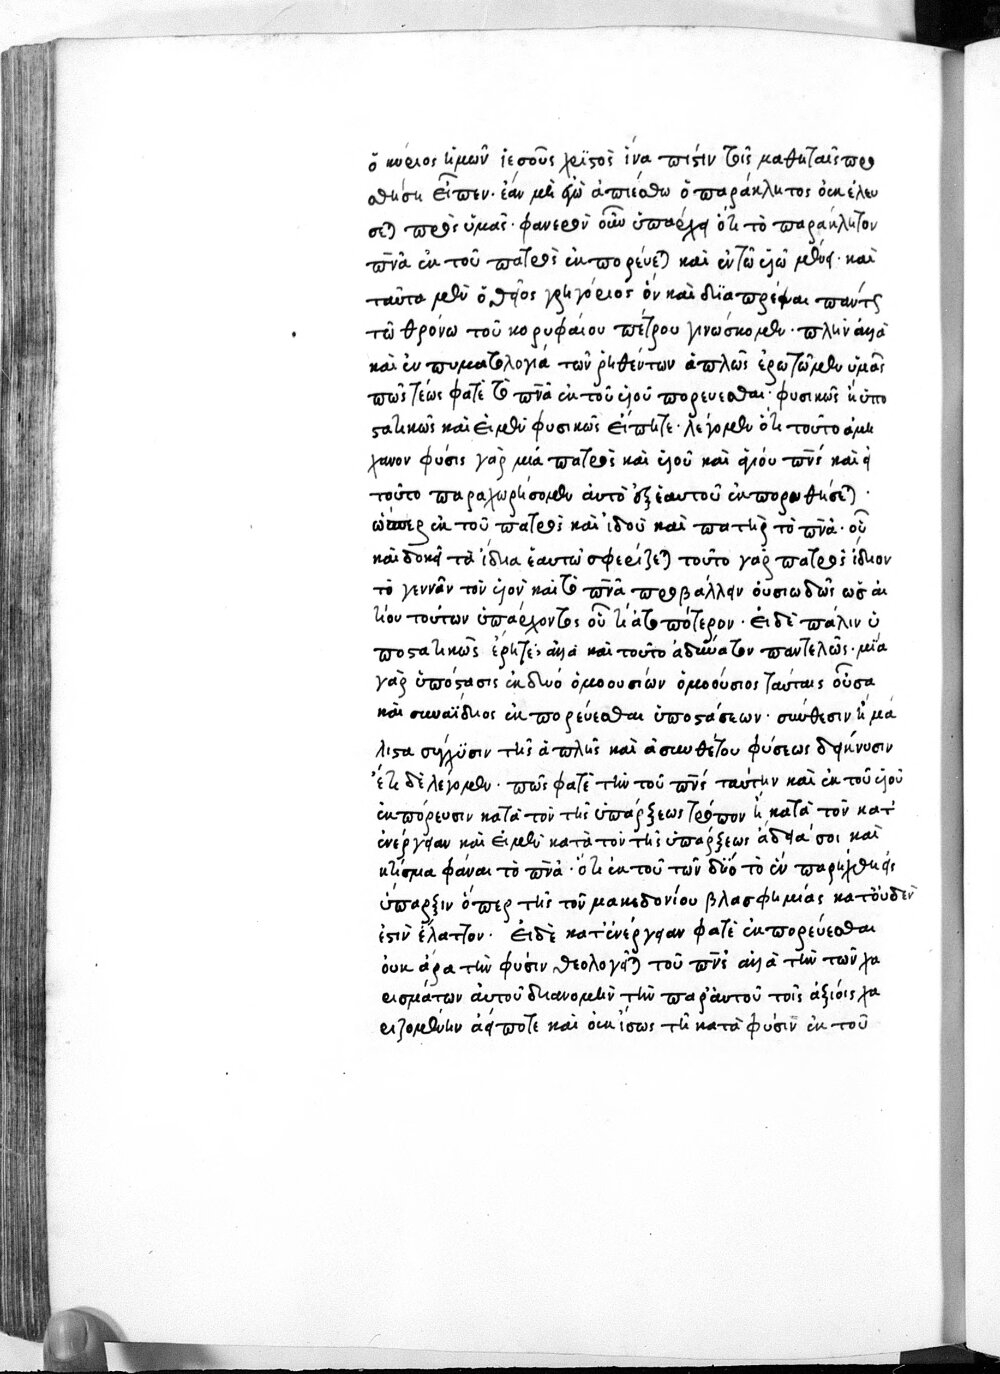 ὁ κύριος ἡμῶν ἰεσοῦς χρϊστὸς ἵνα πίστιν τοῖς μαθηταῖς προ
σθήση εἶπεν· ἐάν μὴ ἐγὼ ἀπιέσθω ὁ παράκλητος οὐκ ἐλευ
σεται πρὸς ὑμᾶς· φανερὸν οὖν ὑπάρχει ὅτι τὸ παράκλητον
πνᾶ ἐκ τοῦ πατρὸς ἐκπορεύεται καὶ ἐν τῶ υἱῶ μένει· καὶ
ταῦτα μὲν ὁ θεῖος γρηγόριος ὃν καὶ διαπρέψαι πάντες
τῶ θρόνω τοῦ κορυφαίου πέτρου γινώσκομεν· πλὴν ἀλλὰ
καὶ ἐν πυματολογία τῶν ῥηθέντων ἁπλῶς ἐρωτῶμεν ὑμᾶς
πῶς τέως φατὲ τὸ πνᾶ ἐκ τοῦ υἱοῦ πορευεσθαι· φυσικῶς ἢ ὑπο
στατικῶς καὶ εἰ μὲν φυσικῶς εἴπητε· λέγομεν ὅτι τοῦτο ἀμη
χανον φύσις γὰρ μιά πατρὸς καὶ υἱοῦ καὶ ἁγίου πνς καὶ εἰ
τοῦτο παραχωρήσομεν αὐτὸ ἐξ ἑαυτοῦ ἐκπορευθήσεται·
ὥσπερ ἐκ τοῦ πατρὸς καὶ ἰδοὺ καὶ πατὴρ τὸ πνᾶ· οὗ
καὶ δοκεῖ τὰ ἴδια ἑαυτῶ σφερίζεται τοῦτο γὰρ πατρὸς ἴδιον
τὸ γεννᾶν τὸν υἱὸν καὶ τὸ πνᾶ προβάλλειν οὐσιωδῶς ὡς αἰ
τίου τούτων ὑπάρχοντος οὗ τί ἀτοπότερον· εἰ δὲ πάλιν ὑ
ποστατικῶς ἐρητε· ἀλλὰ καὶ τοῦτο ἀδύνατον παντελῶς· μία
γὰρ ὑπόστασις ἐκ δυό ὁμοουσίων ὁμοούσιος ταύταις οὖσα
καὶ συναΐδιος ἐκπορεύεσθαι ὑποστάσεων· σύνθεσιν ἢ μά
λιστα σύγχυσιν τῆς ἁπλῆς καὶ ἀσυνθέτου φύσεως δείκνυσιν
ἔτι δὲ λέγομεν· πῶς φατὲ τὴν τοῦ πνς ταύτην καὶ ἐκ τοῦ υἱοῦ
ἐκπόρευσιν κατὰ τὸν τῆς ὑπάρξεως τρόπον ἢ κατὰ τὸν κατ'
ἐνέργειαν καὶ εἰ μὲν κατὰ τὸν τῆς ὑπάρξεως ἄδεια σοι καὶ
κτίσμα φάναι τὸ πνᾶ· ὅτι ἐκ τοῦ τῶν δύο τὸ ἓν παρήχθη εἰς
ὕπαρξιν ὅπερ τῆς τοῦ μακεδονίου βλασφημίας κατ' οὐδὲν
ἐστὶν ἔλαττον· εἰ δὲ κατ' ἐνέργειαν φατὲ ἐκπορεύεσθαι
οὐκ ἄρα τὴν φύσιν θεολογεῖται τοῦ πνς ἀλλὰ τὴν τῶν χα
ρισμάτων αὐτοῦ διανομὴν τὴν παρ' αὐτοῦ τοῖς ἀξίοις χα
ριζομένην ἀεί ποτε καὶ οὐκ ἴσως τῆ κατὰ φύσιν ἐκ τοῦ